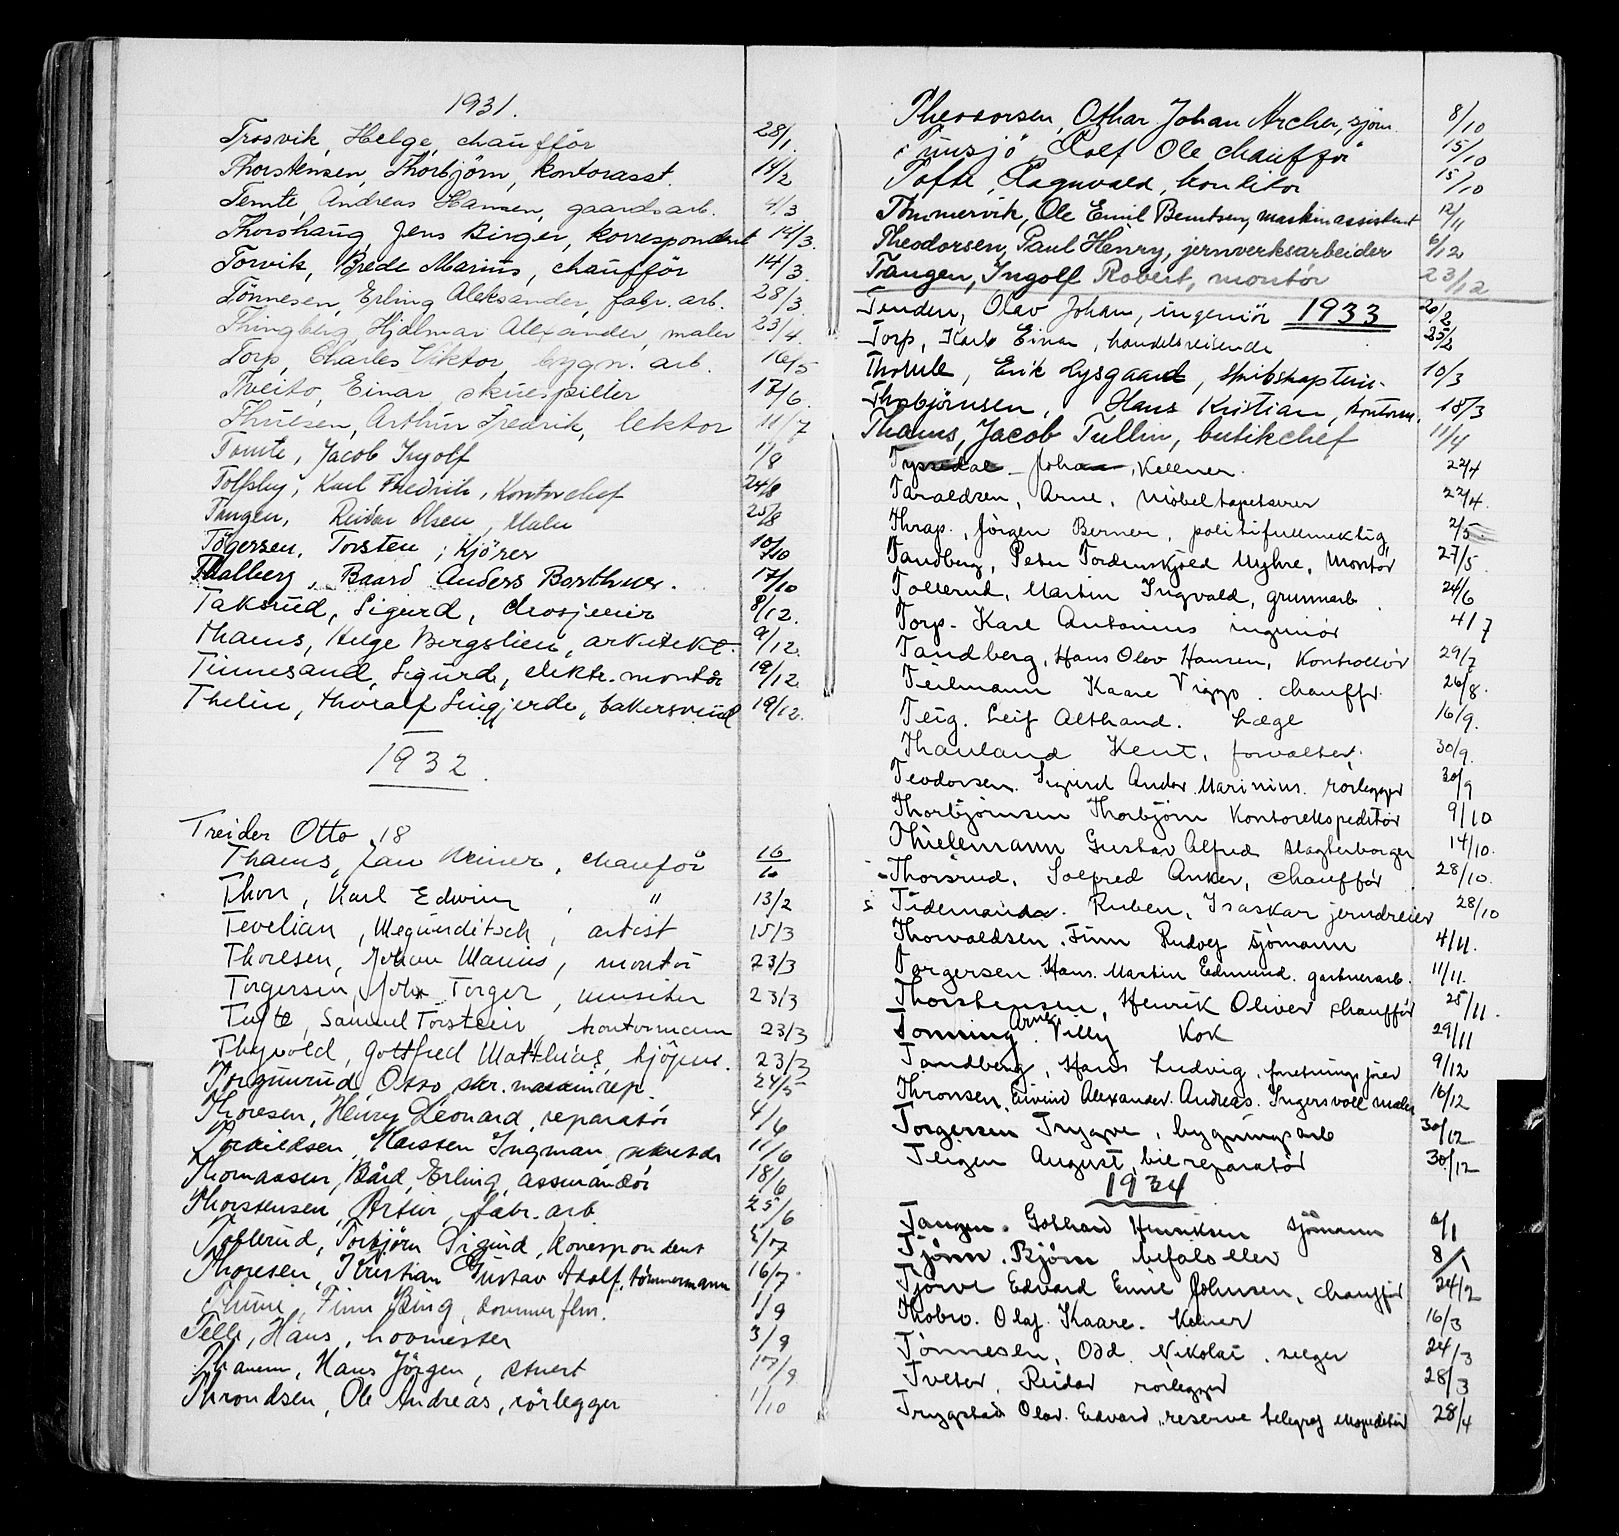 1931.
Trosvik, Helge, chaufför 28/1.
Thorstensen, Thorbjörn, kontorasst. 14/2
Temte, Andreas Hansen, gaardsarb. 4/3
Thorshaug, Jens Birger, korrespondent 14/3.
Torvik, Brede Marius, chaufför 14/3.
Tönnesen, Erling Aleksander, fabr. arb. 28/3.
Thingberg, Hjalmar Alexander, maler 23/4.
Torp, Charles Viktor, bygn. arb. 16/5
Tveito, Einar, skuespiller 17/6.
Thuesen, Arthur Fredrik, lektor 11/7
Tomte, Jacob Ingolf 1/8
Tolfsby, Karl Fredrik, Kontorchef 24/8
Tangen, Reidar Olsen, Maler 25/8
Tögersen, Torsten, Kjörer 10/10
Thalberg, Baard Anders Barthner. 17/10
Taksrud, Sigurd, drosjeeier 8/12.
Thams, Helge Bergslien, arkitekt. 9/12.
Tinnesand, Sigurd, elektr. montör 19/12.
Thelin, Thoralf Lingjerde, bakersvend 19/12.
1932.
Treider Otto 18
Thams, Jan Reiner, chauför 16/
Thon, Karl Edwin, " 13/2
Tevelian, Megurditsch, artist 15/3
Thoresen, Johan Marius, montör 23/3
Torgersen, John Torger, musiker 23/3
Tufte, Samuel Torstein, kontormann 23/3
Thyvold, Gottfred Matthias, kjöpm. 23/3
Torgunrud Otto, skr. maskinrep. 24/5
Thoresen, Henry Leonard, reparatör 4/6
Karsten Ingman, 11/6
Thomassen, Bård, Erling, assurandör 18/6
Thorstensen, Artur, fabr. arb. 25/6
Tofterud, Torbjörn Sigurd, Korrespondent 2/7
Thoresen, Kristian Gustav Adolf, tömmermann 16/7.
Thune, Finn Bing, dommerflm. 1/9
Telle, Hans, hovmester 3/9
Thanem, Hans Jörgen, stuert 17/9
Throndsen, Ole Andreas, rörlegger 1/10
Theodorsen, Othar Johan Archer, sjöm. 8/10
Tunsjö, Rolf Ole chaufför 15/10
Tofte, Ragnvald, konditor 15/10
Thommervik, Ole Emil Berntsen, maskinassistent 12/11
Theodorsen, Paul Henry, jernverksarbeider 6/12
Tangen, Ingolf Robert, montör 23/12
1933
Tenden, Olav Johan, ingeniör 26/2
Torp, Karl Einar, handelsreisende 25/2
Thotule, Erik Lysgaard, skibskaptein 10/3
Thorbjörnsen, Hans Kristian, kontorm. 18/3
Thams, Jacob Tullin, butikchef 11/4
Tyssedal Johan, Kellner. 22/4
Taraldsen, Arne, möbeltapetserer 22/4.
Thrap, Jörgen Berner, politifullmektig 2/5
Tandberg, Peter Tordenskjold Myhre, Montör 27/5.
Tollerud, Martin Ingvald, grunnarb. 24/6
Torp. Karl Antonius ingeniör 4/7
Tandberg, Hans Olav Hansen, Kontrollör 29/7
Teilmann Kaare Viggo. chauffr. 26/8.
Teig. Leif Althand. Læge 16/9.
Thauland Kent, forvalter. 30/9.
Teodorsen. Sigurd Andor Marinius. rörlegger 30/9
Thorbjörnsen Thorbjörn Kontorekspeditör 9/10
Thielemann Gustav Alfred slagterborger 14/10.
Thorsrud, Solfred Anker, Chaufför 28/10.
Tidemand. Ruben, Isaskar jerndreier 28/10
Thorvaldsen. Finn Rudolf sjömann 4/11.
Torgersen Hans. Martin Edmund. gartnerarb. 11/11.
Thorstensen, Henrik Oliver chaufför 25/11.
Tonning. Arne Villy Kok 29/11
Tandberg, Hans Ludvig, forretningsförer 9/12
Thronsen, Eivind Alexander Andreas. Ingersvoll maler 16/12
Torgersen Trygve, bygningsarb 30/12
Teigen August, bilreparatör 30/12
1934
Tangen. Gothard Henriksen sjömann 6/1
Tjönn. Björn befalselev 8/1
Tjörve Edvard Emil Johnsen, chaufför 24/2
Thobro. Olaf. Kaare. Kelner 16/3
Tönnesen, Odd. Nikolai. selger 24/3
Tveter, Reidar rörlegger 28/3
Trygstad Olav. Edvard, reserve telegraf ekspeditör 28/4